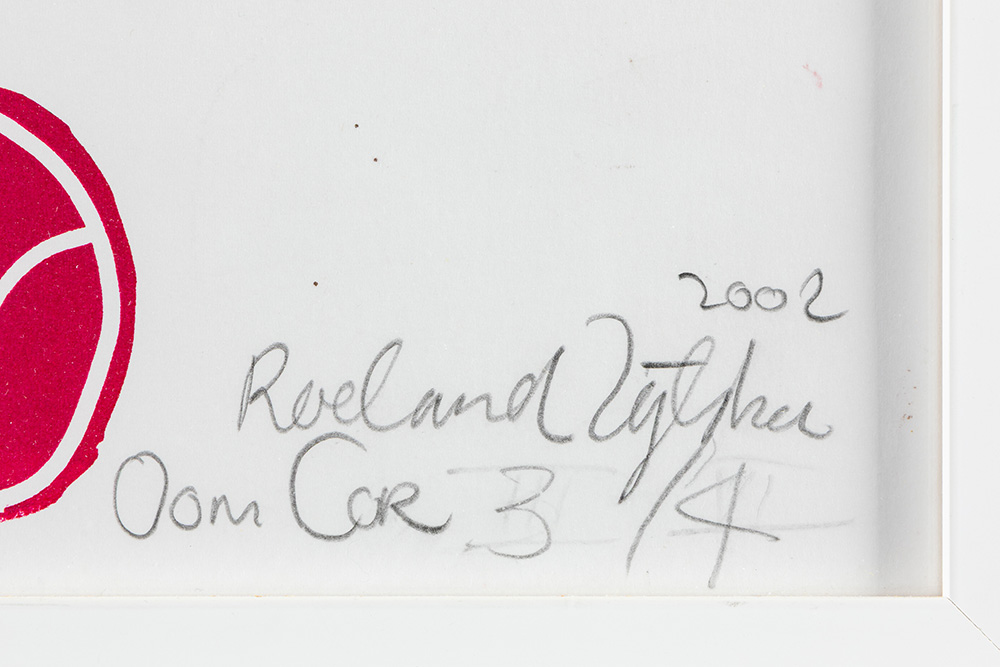 2002
Roeland Zijlstra
Oom Cor 3/4